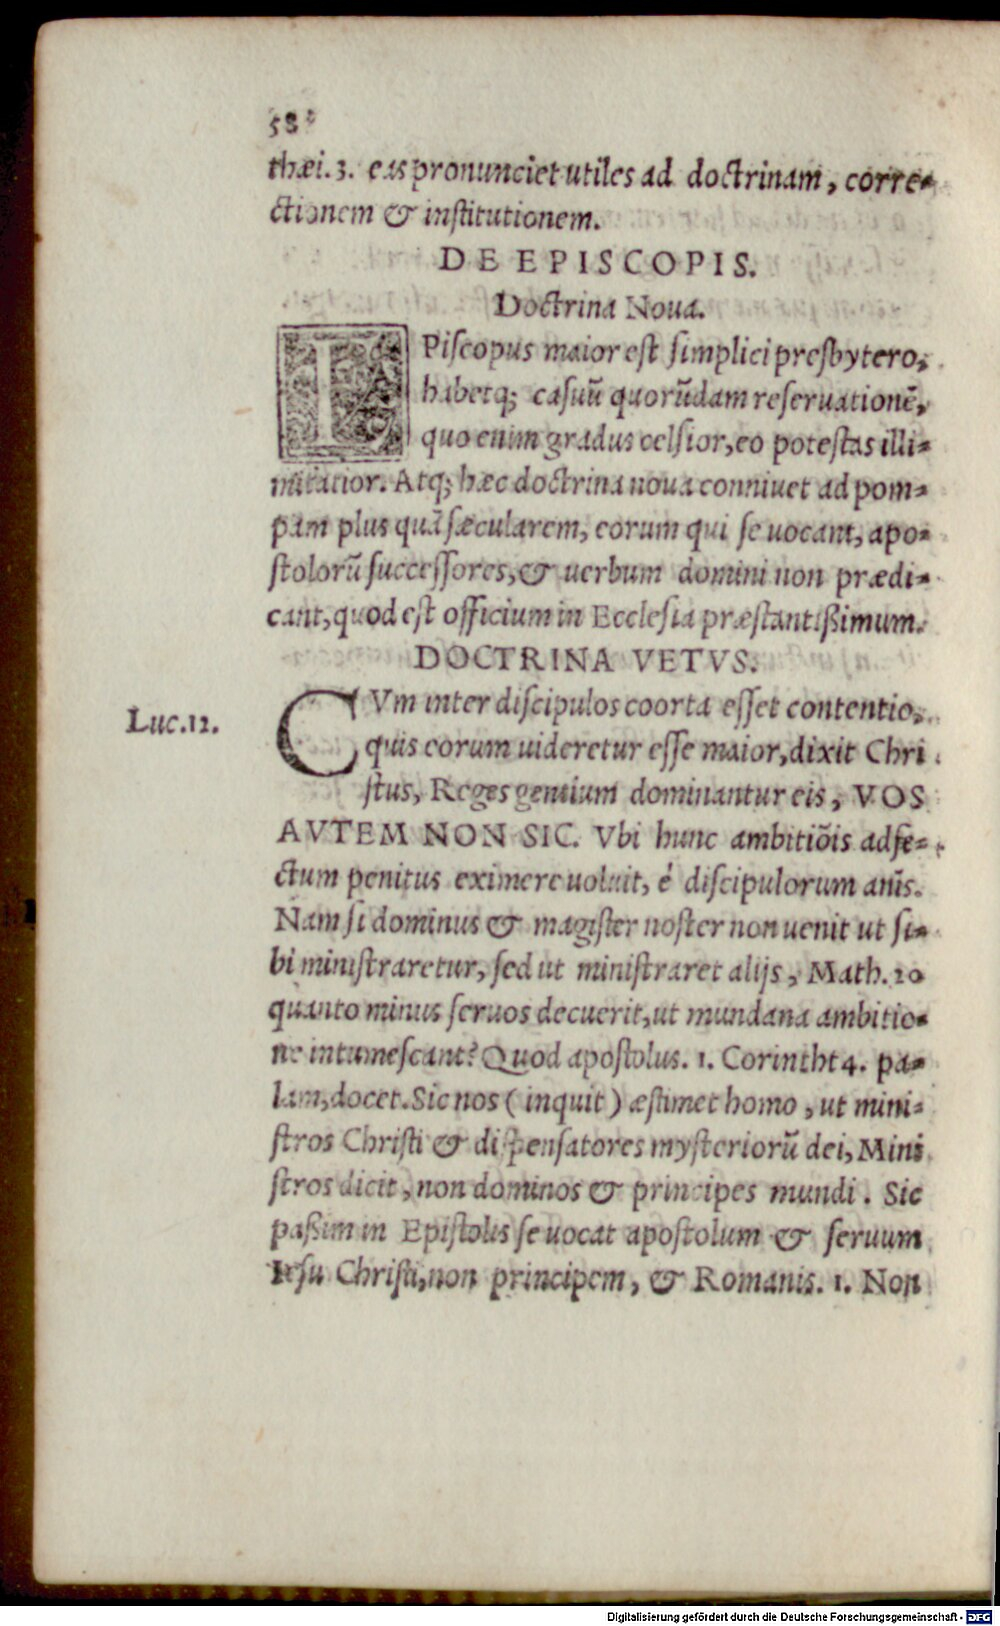 58
thæi.3. eas pronunciet utiles ad doctrinam, corre-
ctionem & institutionem.
DE EPISCOPIS.
Doctrina Noua.
EPiscopus maior est simplici presbytero,
habetq; casuū quorūdam reseruationē,
quo enim gradus celsior, eo potestas illi-
mitatior. Atq; hæc doctrina noua conniuet ad pom-
pam plus quā sæcularem, eorum qui se uocant, apo-
stolorū successores, & uerbum domini non prædi-
cant, quod est officium in Ecclesia præstantißimum.
DOCTRINA VETVS.
Luc.12.
CVm inter discipulos coorta esset contentio,
quis eorum uideretur esse maior, dixit Chri
stus, Reges gentium dominantur eis, VOS
AVTEM NON SIC. Vbi hunc ambitiōis adfe-
ctum penitus eximere uoluit, è discipulorum anīs.
Nam si dominus & magister noster non uenit ut si-
bi ministraretur, sed ut ministraret alijs, Math.20
quanto minus seruos decuerit, ut mundana ambitio-
ne intumescant? Quod apostolus. 1. Corintht 4. pa-
lam, docet. Sic nos (inquit) æstimet homo, ut mini-
stros Christi & dispensatores mysteriorū dei, Mini
stros dicit, non dominos & principes mundi. Sic
paßim in Epistolis se uocat apostolum & seruum
Iesu Christi, non principem, & Romanis. 1. Non
Digitalisierung gefördert durch die Deutsche Forschungsgemeinschaft - DFG